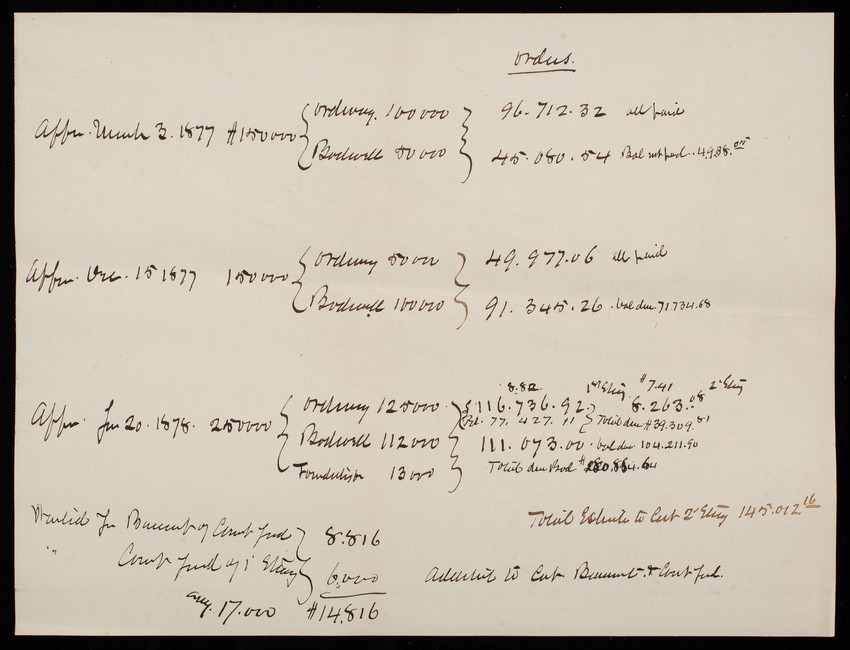 Orders.
Appn. March 3. 1877 $150000 { Ordway. 100000 } 96.712.32 all paid
{ Bodwell 50000 } 45.080.54 Bal not paid. 4,938.
Appn. Dec. 15 1877 150000 { Ordway 50000 } 49.977.06 all paid
{ Bodwell 100000 } 91.345.26. bal due 71734.68
8.82 1st Story $7.41 2d Story
Appn. Jun 20. 1878. 250000 { Ordway 125000. } 116.736.92 } 8.263.08
Bal. 77, 427. 11 } Total due $39.309.81
{ Bodwell 112000 } 111.073.00. bal due 104.211.90
Foundation 13000 } Total due Bod
Total Estimate to Cut 2d Story 145.012 16
Wanted for Basement of Court yard } 8.816
" Court yard of 1st Story } 6,000
say. 17.000 $14.816
to Cut Basement & Court yd.